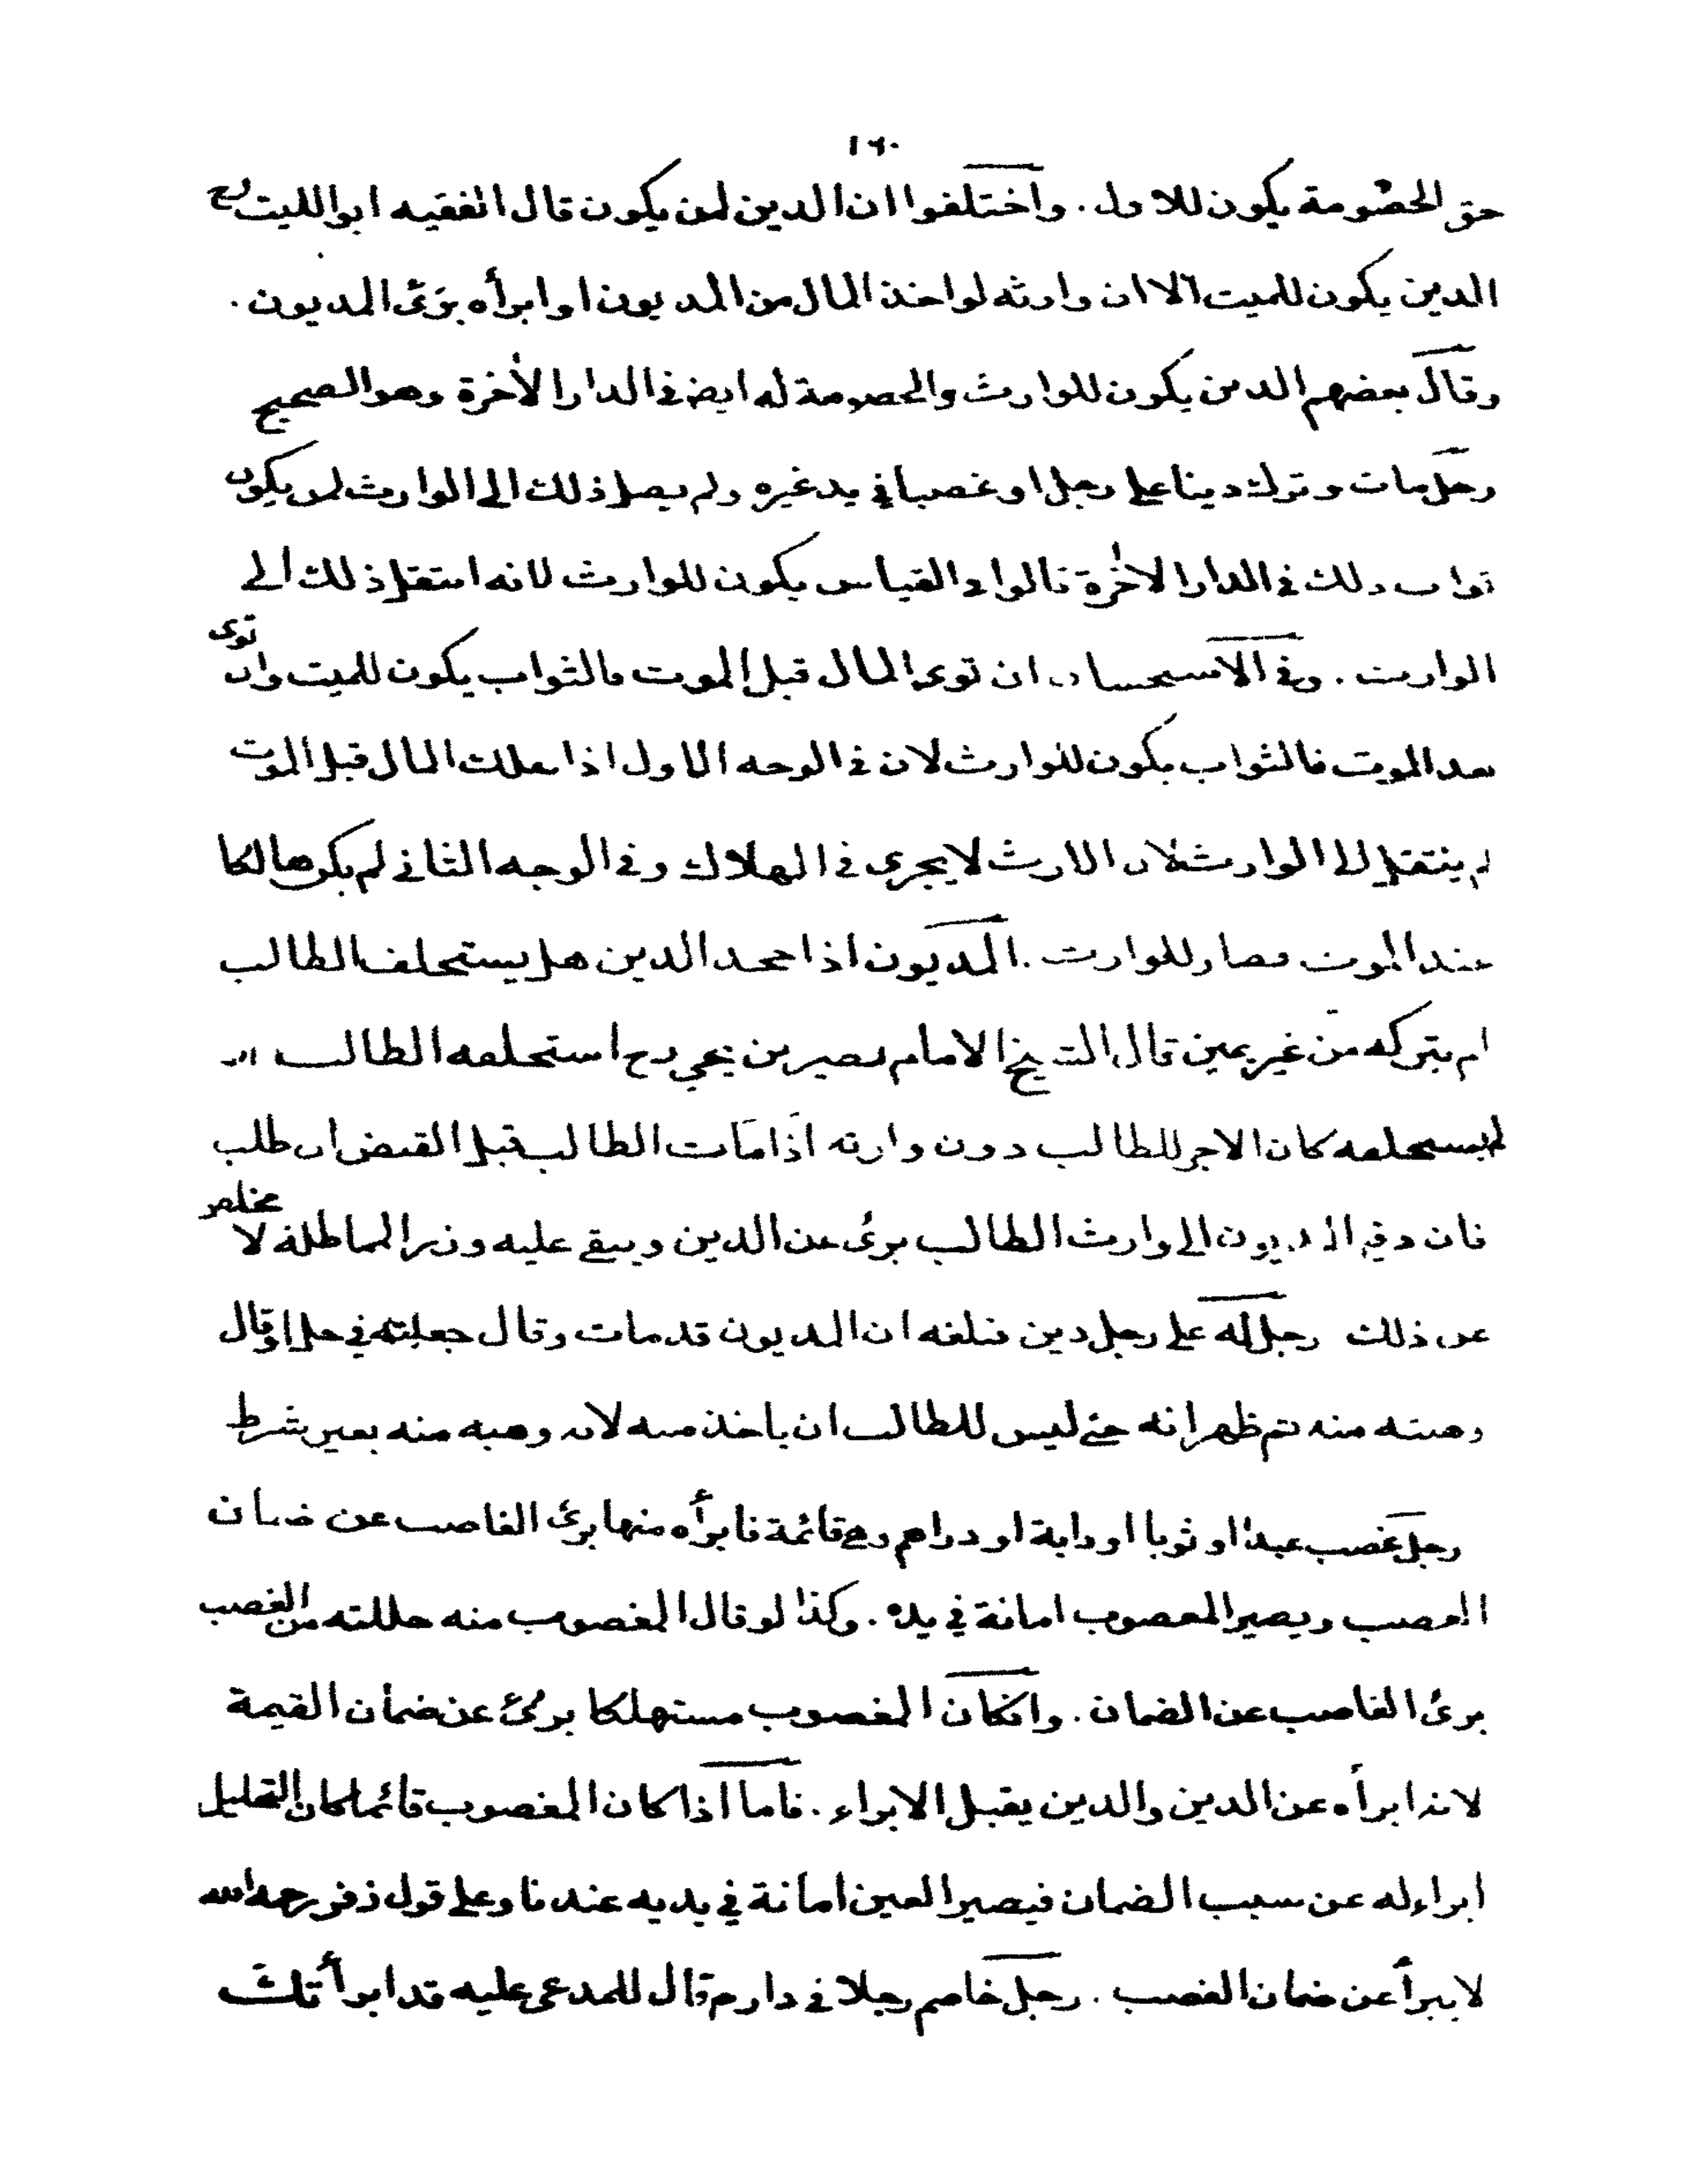 ١٦٠
حق الخصومة يكون للاول . واختلفوا ان الدين لمن يكون قال الفقيه ابوالليث رح
الدين يكون للميت الا ان وارثه لو اخذ المال من المديون او ابرأه برئ المديون .
وقال بعضهم الدين يكون للوارث والخصومة له ايض في الدار الأخرة وهو الصحيح
رجل مات و ترك دينا على رجل او غصبا في يد غيره ولم يصل ذلك الى الوارث لمن يكون
ثواب ذلك في الدار الاخرة قالوا في القياس يكون للوارث لانه انتقل ذلك الى
الوارث . وفي الاستحسان ان توى المال قبل الموت فالثواب يكون للميت وان توى
بعد الموت فالثواب يكون للوارث لان في الوجه الاول اذا هلك المال قبل الموت
لم ينتقل الى الوارث لان الارث لا يجري في الهلاك وفي الوجه الثاني لم يكن هالكا
عند الموت فصار للوارث . المديون اذا جحد الدين هل يستحلف الطالب
ام يتركه من غير يمين قال الشيخ الامام نصير بن يحيى رح استحلفه الطالب او
لم يستحلفه كان الاجر للطالب دون وارثه اذا مات الطالب قبل القبض ان طلب
فان دفع المديون الى وارث الطالب برئ عن الدين ويبقى عليه وزر المماطلة لا مخلص
عن ذلك رجل له على رجل دين فبلغه ان المديون قد مات وقال جعلته في حل او قال
وهبته منه ثم ظهر انه حي ليس للطالب ان ياخذ منه لانه وهبه منه بغير شرط
رجل غصب عبدا او ثوبا او دابة او دراهم وهي قائمة فابرأه منها برئ الغاصب عن ضمان
الغصب ويصير المغصوب امانة في يده . وكذا لو قال المغصوب منه حللته من الغصب
برئ الغاصب عن الضمان . وانكان المغصوب مستهلكا برئ عن ضمان القيمة
لانه ابرأه عن الدين والدين يقبل الابراء . فاما اذا كان المغصوب قائما كان التحليل
ابراء له عن سبب الضمان فيصير العين امانة في يديه عندنا وعلى قول زفر رحمه الله
لا يبرأ عن ضمان الغصب . رجل خاصم رجلا في دار ثم قال للمدعى عليه قد ابرأتك